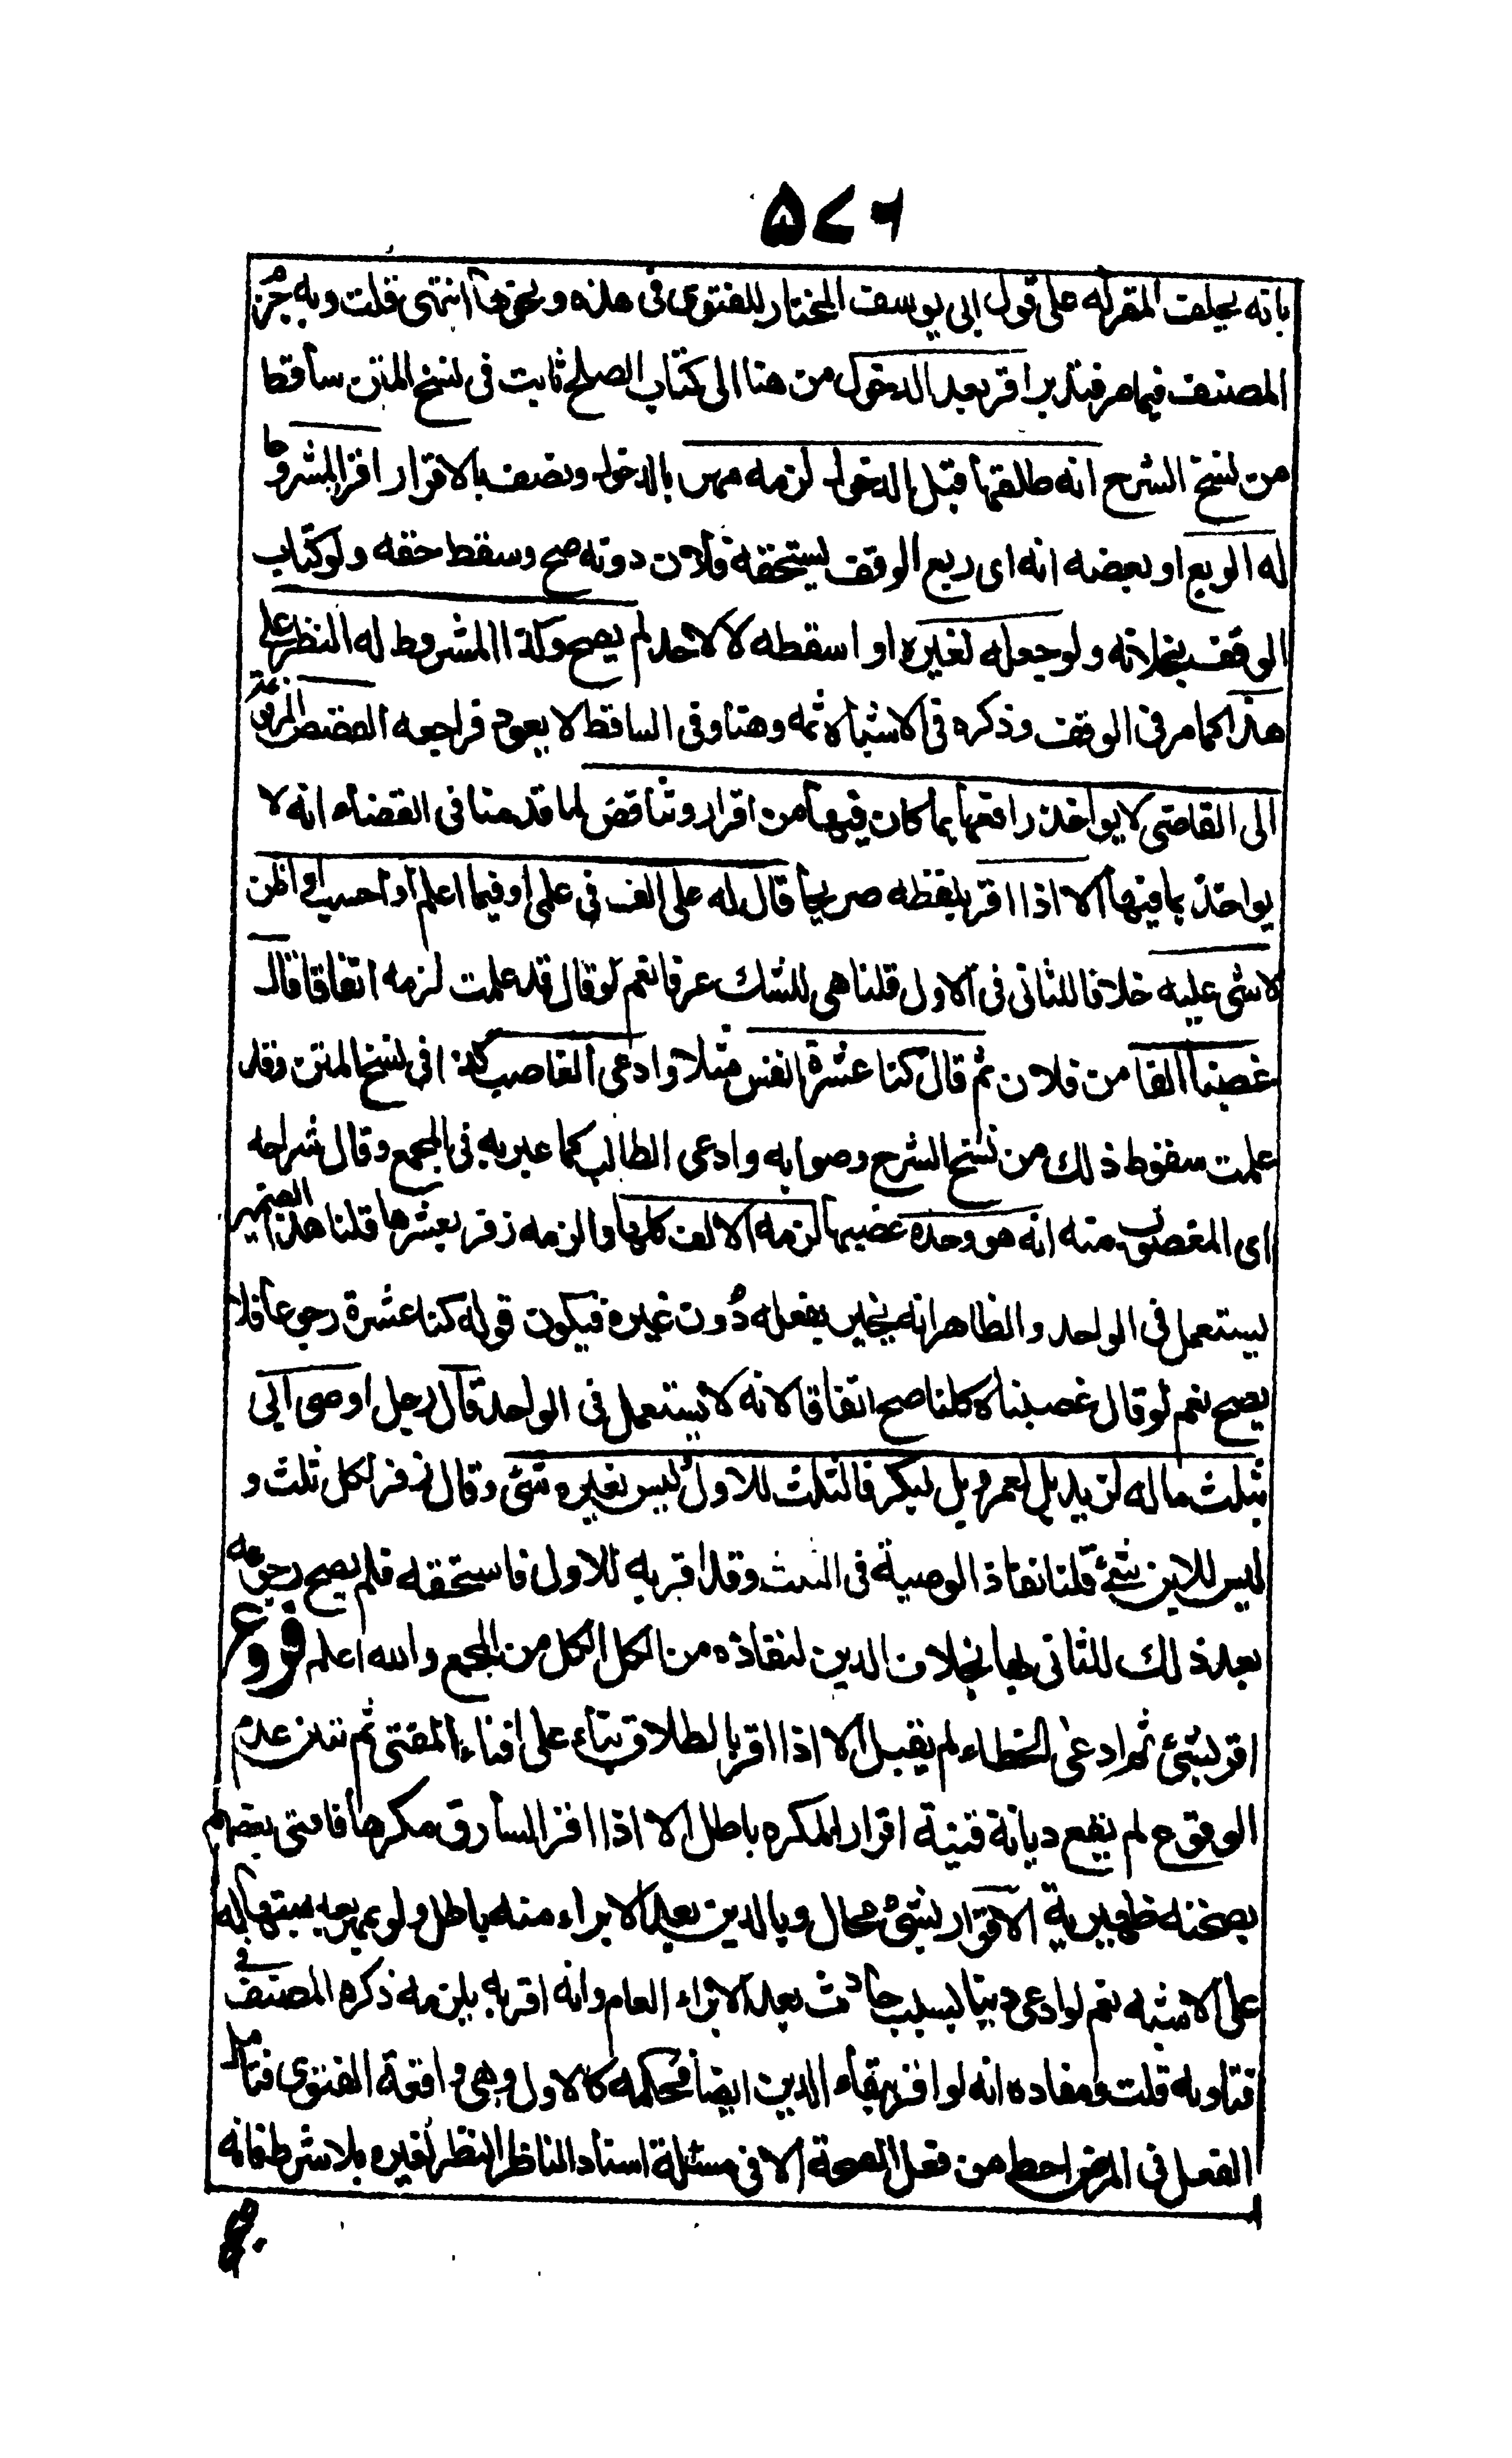 ٥٧٦
بانه يحلف المقرله على قول ابى يوسف المختار للفتوى فى هذه ونحوها انتهى قلت وبه جزم
المصنف فيما مر فتدبر اقر بعد الدخول من هنا الى كتاب الصلح ثابت فى نسخ المتن ساقط
من نسخ الشرح انه طلقها قبل الدخول لزمه مهر بالدخول ونصف بالاقرار اقر المشروط
له الريع او بعضه انه اى ريع الوقف يستحقه فلان دونه صح وسقط حقه ولو كتاب
الوقف بخلافه ولو جعله لغيره او اسقطه لا لاحد لم يصح وكذا المشروط له النظر على
هذا كما مر فى الوقف وذكره فى الاشباه ثمه وهنا وفى الساقط لا يعود فراجعه القصص المرفوعة
الى القاضى لا يواخذ رافعها بما كان فيها من اقرار وتناقض لما قدمنا فى القضاء انه لا
يواخذ بما فيها الا اذا اقر بلفظه صريحا قال له على الف فى علمى او فيما اعلم او احسب او اظن
لاشى عليه خلافا للثانى فى الاول قلنا هى للشك عرفا نعم لو قال قد علمت لزمه اتفاقا قال
غصبنا الفا من فلان ثم قال كنا عشرة انفس مثلا وادعى الغاصب كذا فى نسخ المتن وقد
علمت سقوط ذلك من نسخ الشرح وصوابه وادعى الطالب كما عبر به فى المجمع وقال شراحه
اى المغصوب منه انه هو وحده غصبها لزمه الالف كلها والزمه زفر بعشرها قلنا هذا الضمير
يستعمل فى الواحد والظاهر انه يخبر بفعله دون غيره فيكون قوله كنا عشرة رجوعا فلا
يصح نعم لو قال غصبناه كلنا صح اتفاقا لانه لا يستعمل فى الواحد قال رجل اوصى ابى
بثلث ماله لزيد بل لعمرو بل لبكر فالثلث للاول ليس لغيره شئ وقال زفر لكل ثلث و
ليس للابن شئ قلنا نفاذ الوصية فى الثلث وقد اقر به للاول فاستحقه فلم يصح رجوعه
بعد ذلك للثانى بها بخلاف الدين لنفاذه من الكل الكل من المجمع والله اعلم فروع
اقر بشئ ثم ادعى الخطاء لم يقبل الا اذا اقر بالطلاق بناء على افتاء المفتى ثم تبين عدم
الوقوع لم يقع ديانة قنية اقرار المكره باطل الا اذا اقر السارق مكرها فافتى بعضهم
بصحته ظهيرية الاقرار بشئ محال وبالدين بعد الابراء منه باطل ولو بمهر بعد هبتها له
على الاشبه نعم لو ادعى دينا بسبب حادث بعد الابراء العام وانه اقر به يلزمه ذكره المصنف فى
فتاويه قلت ومفاده انه لو اقر ببقاء الدين ايضا فحكمه كالاول وهى واقعة الفتوى فتامل
الفعل فى المرض احط من فعل الصحة الا فى مسئلة اسناد الناظر النظر لغيره بلا شرط فانه